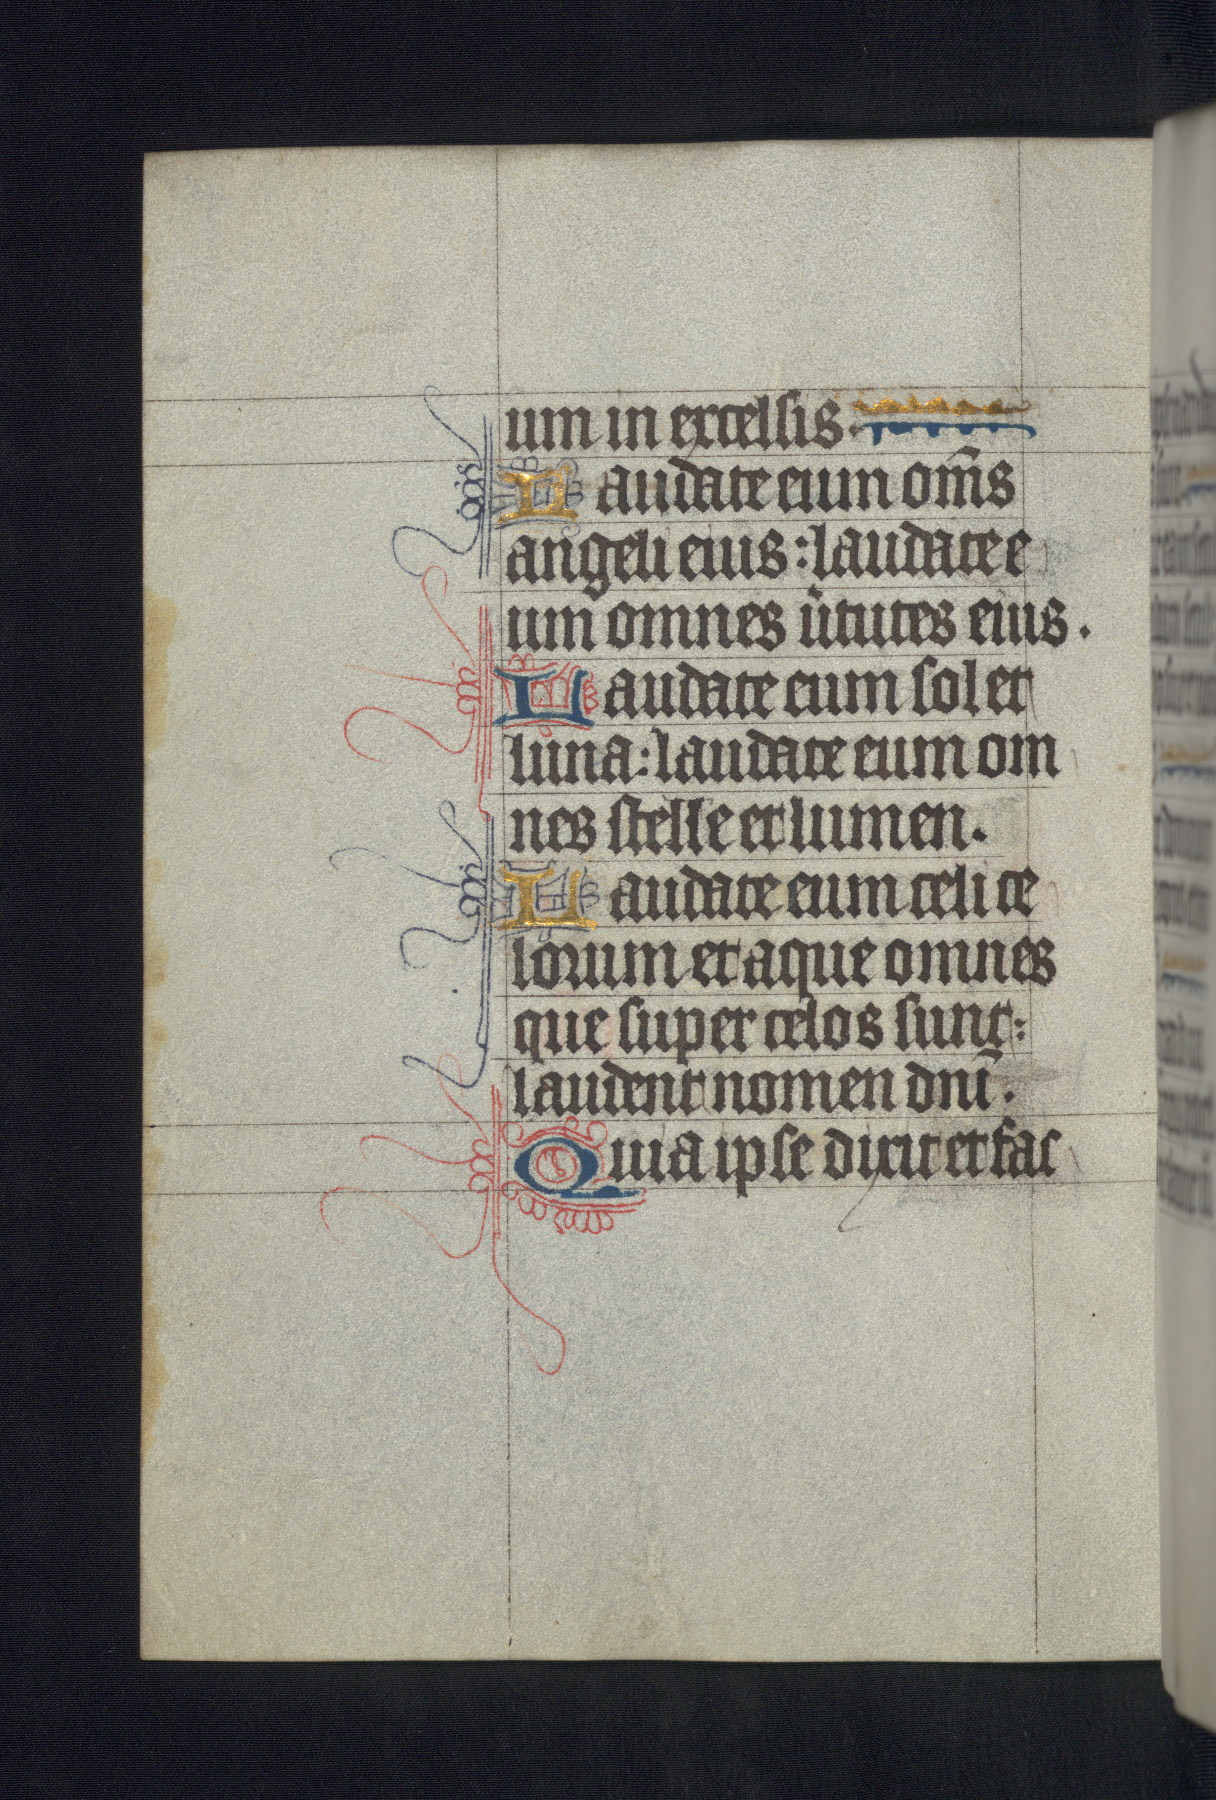 um in excelsis.
Laudate eum om̄s
angeli eius: laudate e
um omnes u̇tutes eius.
Laudate eum sol et
luna: laudate eum om
nes stelle et lumen.
Laudate eum celi ce
lorum et aque omnes
que super celos sunt:
laudent nomen dnī.
Quia ipse dixit et fac